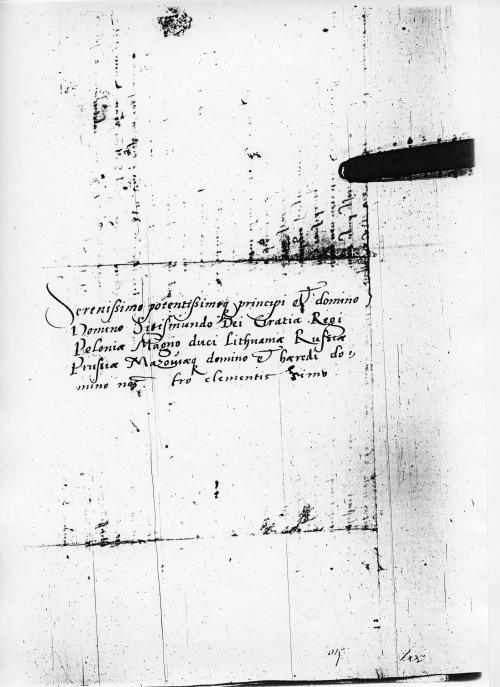 Serenissimo potentissimoq principi et domino
Domino Sigismundo Dei Gratia Regi
Poloniæ Magno duci Lithuaniæ Russiæ
Prussiæ Mazoviæq domino et hæredi do,
mino nos tro clementis simo